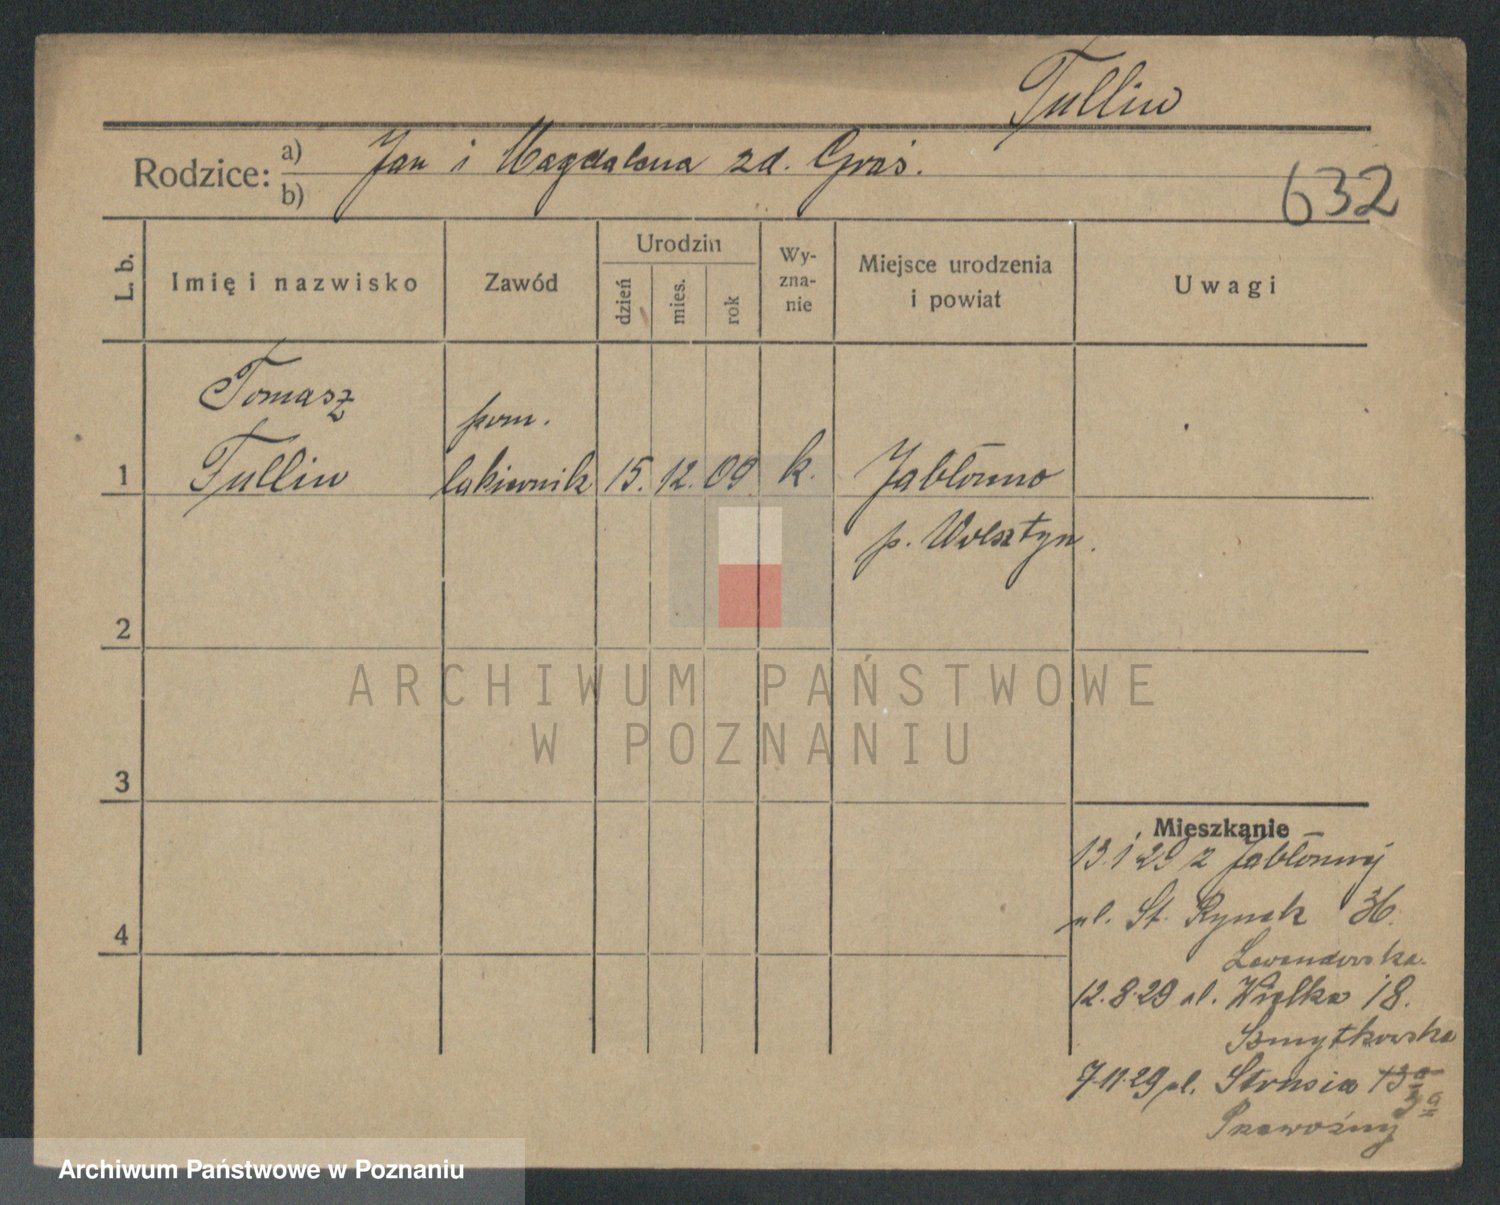 Tulliw
Rodzice: a) Jan i Magdalena zd. Graś.
b)
632
L. b.
Imię i nazwisko
Zawód
Urodzin
dzień
mies.
rok
Wy-
zna-
nie
Miejsce urodzenia
i powiat
Uwagi
Tomasz
pom.
1 Tulliw lakiernik 15. 12. 09 k. Jabłonno
p. Wolsztyn.
2
3
4
Mieszkanie
13.1 29 z Jabłonnej
ul. St. Rynek 36.
Lewandowska.
12.8.29 ul. Wielka 18.
Szmytkowska
7.11.29 ul. Strusia 13a
3a
ARCHIWUM PAŃSTWOWE
W POZNANIU
Archiwum Państwowe w Poznaniu